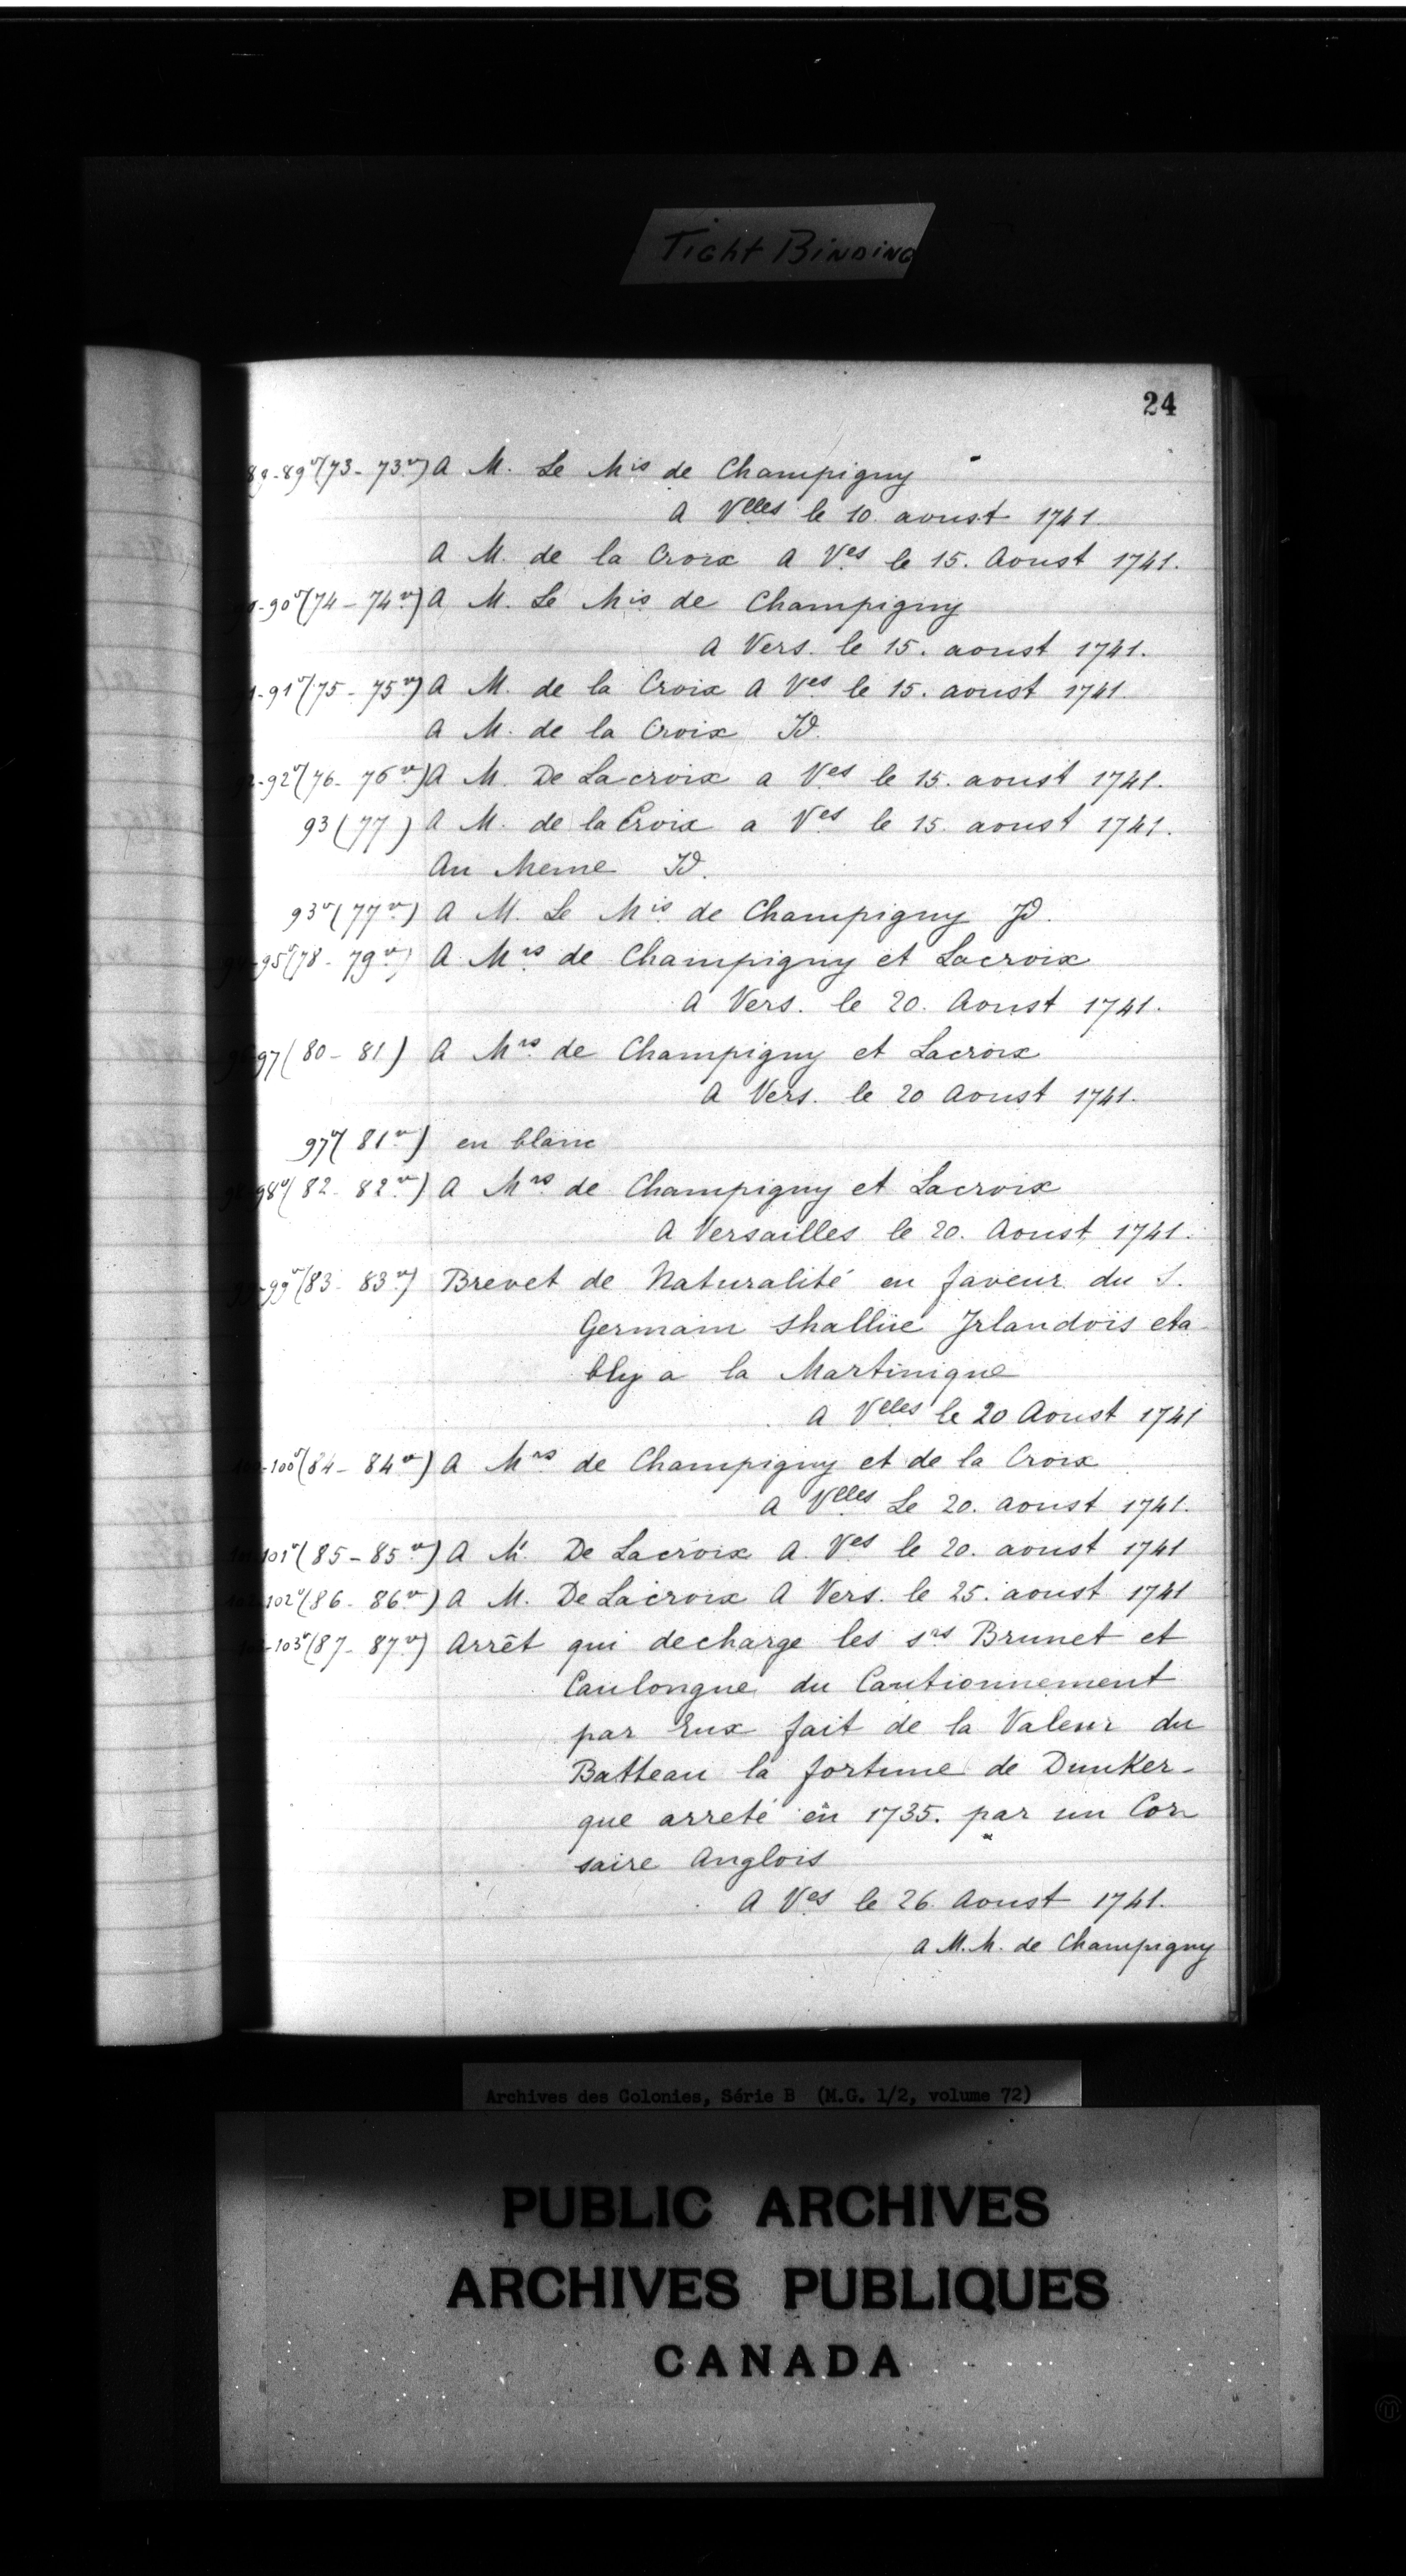 Tight Binding
24
89-89v (73 - 73v) A M. Le Mis de Champigny
A Vlles le 10 aoust 1741.
A M. de la Croix A Ves le 15. Aoust 1741.
-90v (74 - 74v) A M. Le Mis de Champigny
A Vers. le 15. aoust 1741.
-91v (75 - 75v) A M. de la Croix A Ves le 15. aoust 1741.
A M. de la Croix Id.
-92v (76 - 76v) A M. De Lacroix a Ves le 15. aoust 1741.
93 (77) A M. de la Croix a Ves le 15. aoust 1741.
Au Meme Id.
93v (77v) A M. Le Mis de Champigny Id.
-95v (78 - 79v) A Mrs de Champigny et Lacroix
A Vers. le 20. Aoust 1741.
97 (80 - 81) A Mrs de Champigny et Lacroix
A Vers. le 20 Aoust 1741.
97v (81v) en blanc
98v (82 - 82v) A Mrs de Champigny et Lacroix
A Versailles le 20. Aoust 1741.
-99v (83 - 83v) Brevet de Naturalité en faveur du S.
Germain Shallüe Irlandois eta-
bly a la Martinique
A Vlles le 20 Aoust 1741
-100v (84 - 84v) A Mrs de Champigny et de la Croix
A Vlles Le 20. aoust 1741.
101v (85 - 85v) A M. De Lacroix A Ves le 20. aoust 1741
102v (86 - 86v) A M. De Lacroix A Vers. le 25. aoust 1741
-103v (87 - 87v) Arrêt qui decharge les srs Brunet et
Caulongue du Cautionnement
par Eux fait de la Valeur du
Batteau la fortune de Dunker-
que arreté en 1735. par un Cor
saire Anglois
A Ves le 26. Aoust 1741.
a M. M. de Champigny
Archives des Colonies, Série B (M.G. 1/2, volume 72)
PUBLIC ARCHIVES
ARCHIVES PUBLIQUES
CANADA